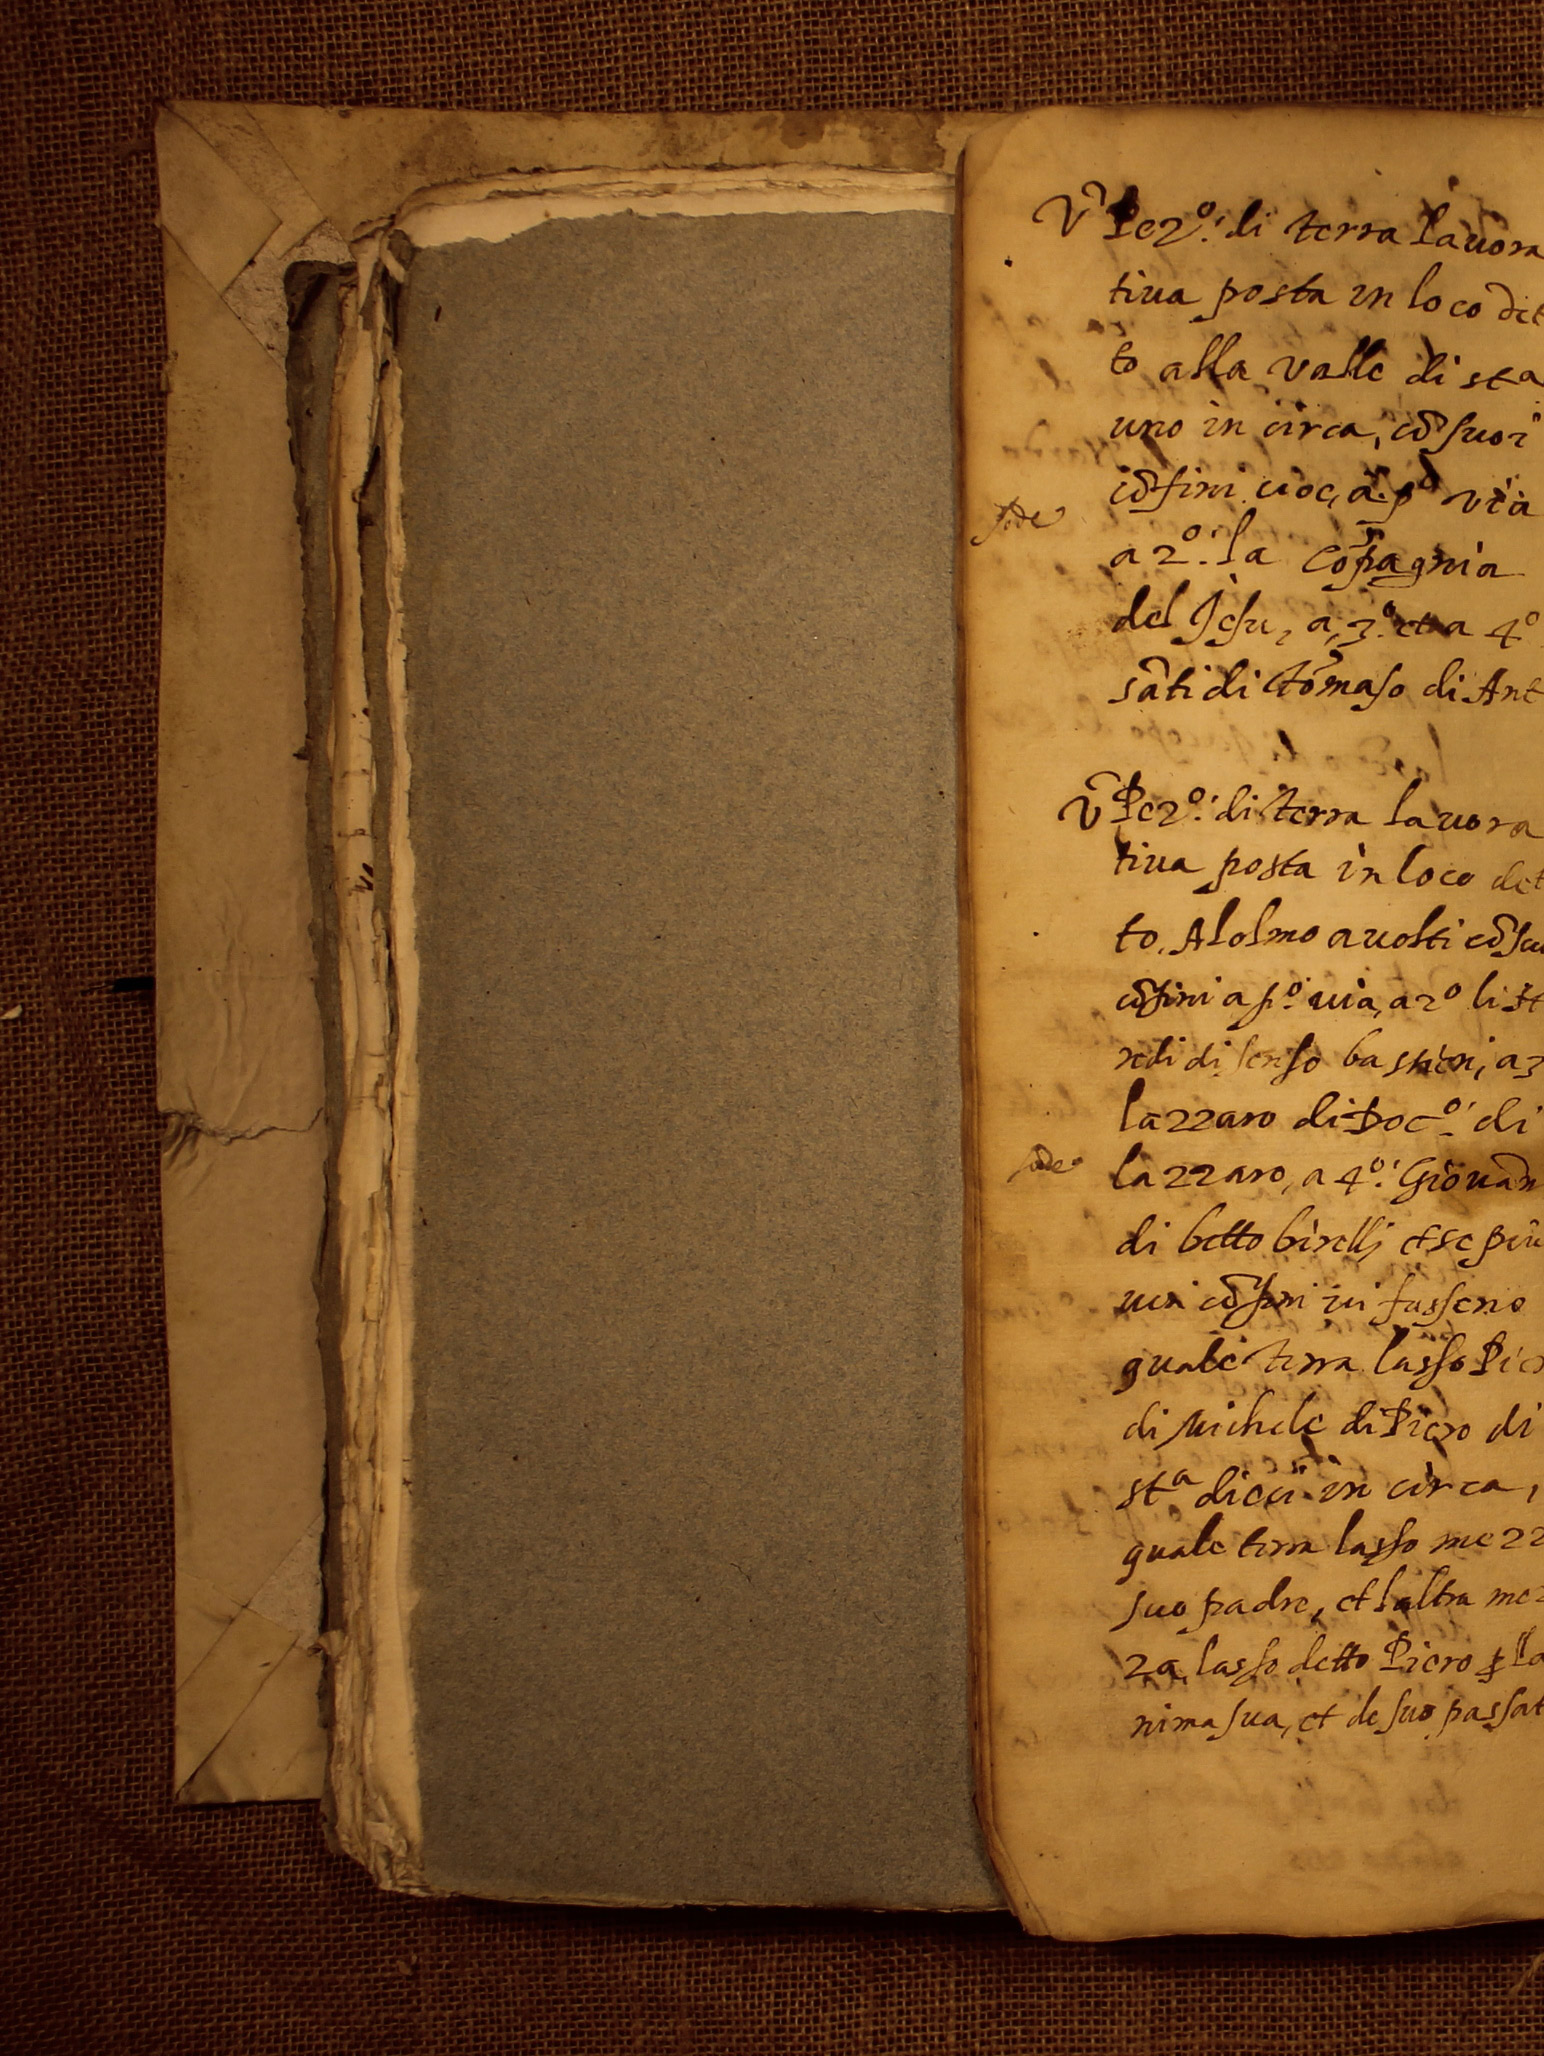 Ṽ Pez.º di terra lauora
tiua posta in loco det
to alla valle di st.a
uno in circa, cõ suoi
cõfini uoc, a pº via
a 2º. la Cõpagnia
del Jesu, a, 3º et a 4º
sãti di Tõmaso di Ant
Ṽ Pez.º di terra lauora
tiua posta in loco det
to, Alolmo auolti cõ su
cõfini a pº uia, a 2º li
redi di senso bastieni, a 3
lazzaro di Docº. di
lazzaro, a 4º. Giouãn
di betto birelli et se più
ueri cõfini iui fusseno
quale terra lasso Pier
di Michele di Piero di
st.a dieci in circa,
quale terra lasso mezz
suo padre, et laltra mez
za, lasso detto Piero ꝑ la
nima sua, et de suo passat